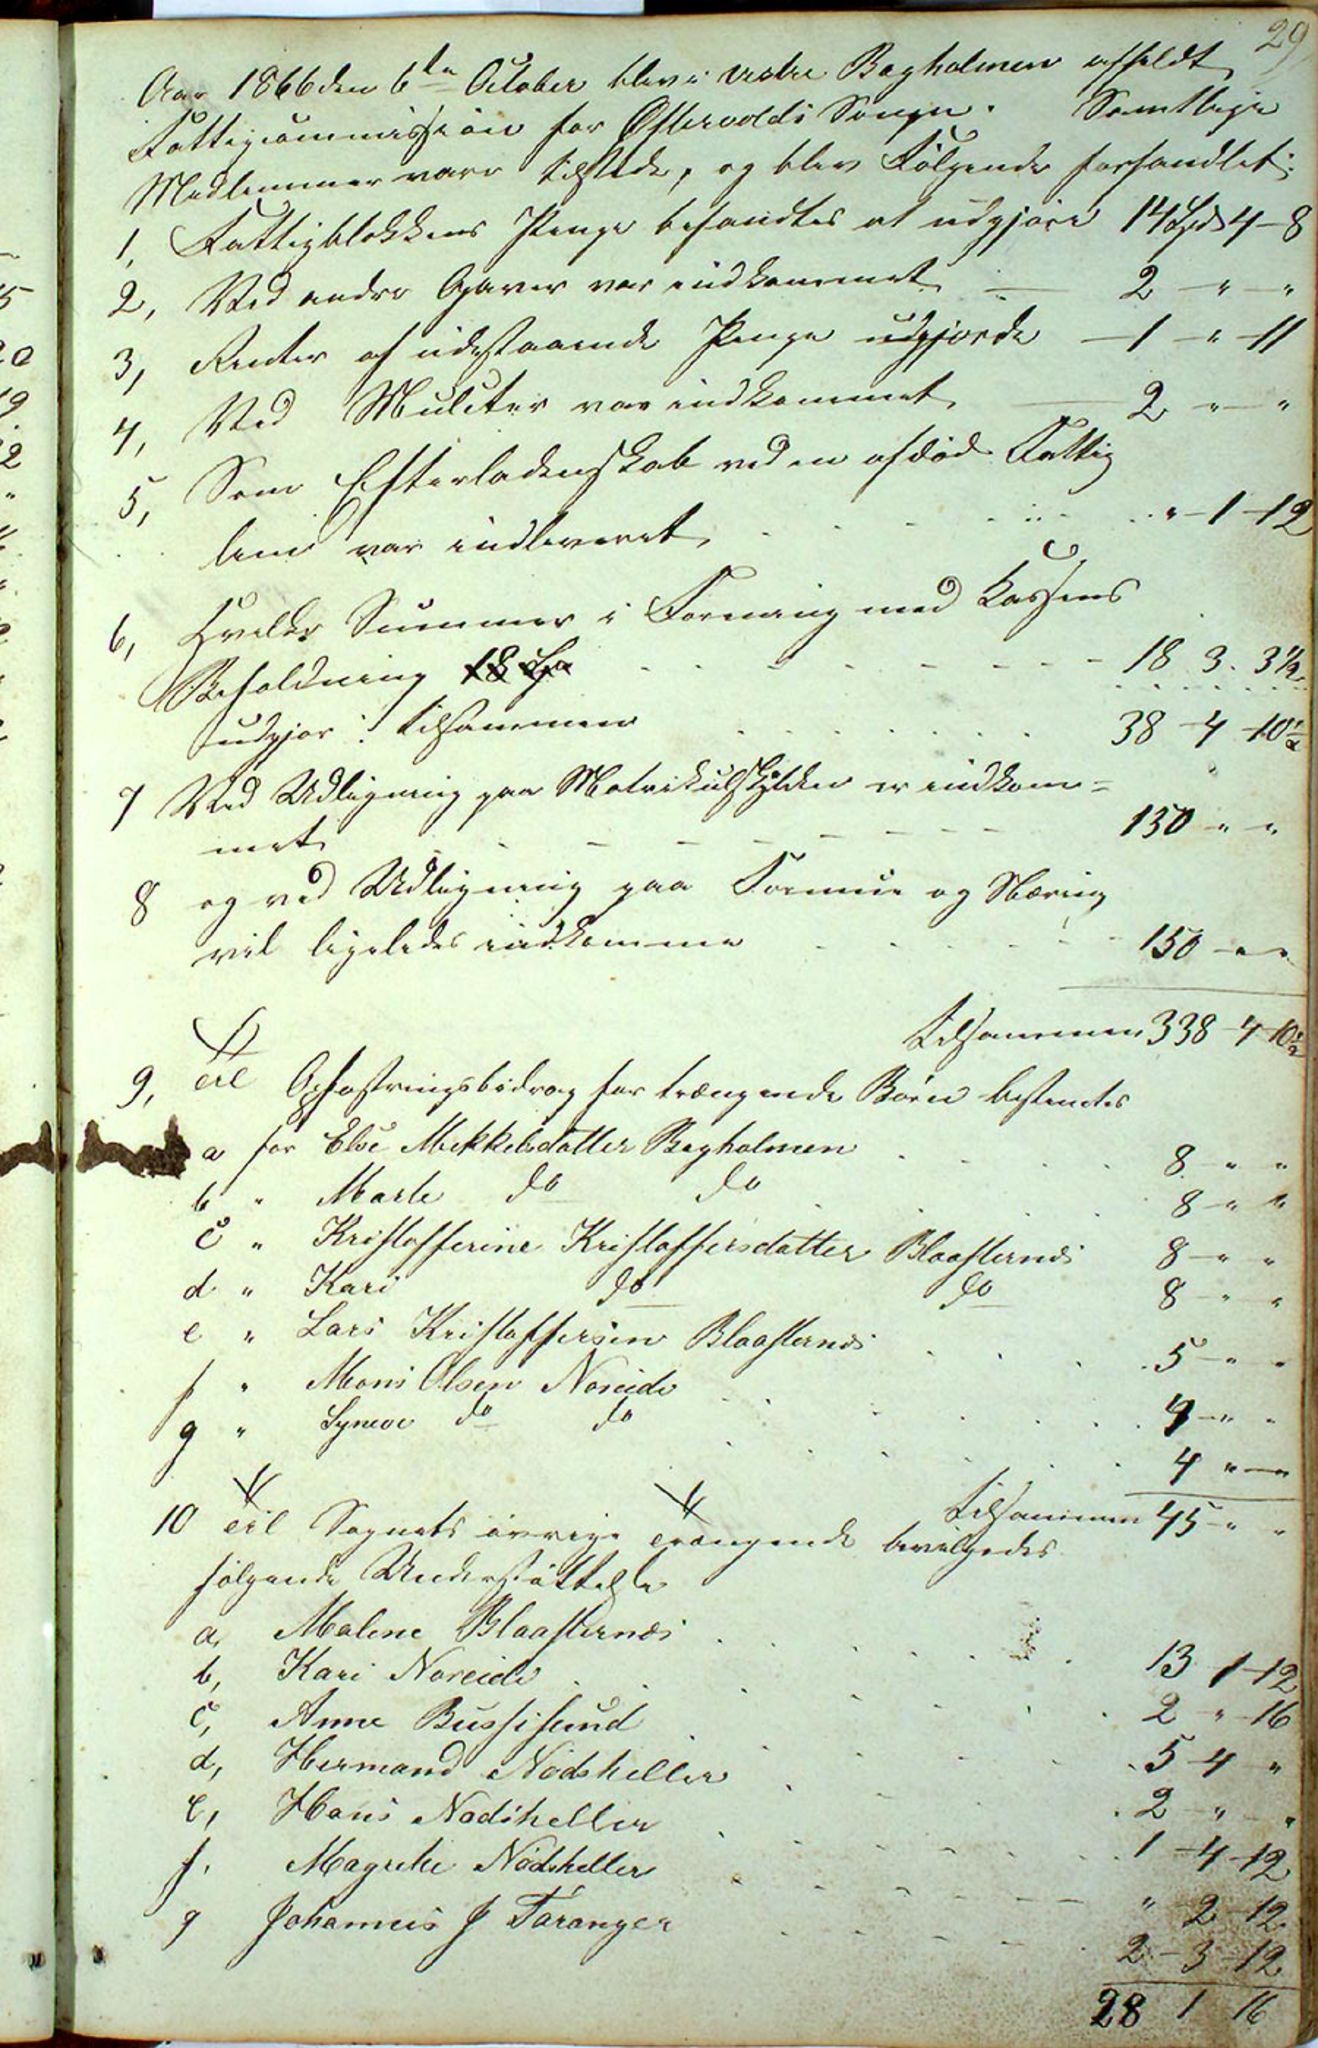 29
Aar 1866 den 6te October blev i vestre Bogholmen afholdt
Fattigcommission for Ostervolds Sogn. Samtlige
Medlemmer vare tilstede, og blev Følgende forhandlet:
1, Fattigblokkens Penge befandtes at udgjøre 14 Spd 4 - 8
2, Ved andre Gaver var indkommet — 2 - " - "
3, Renter af udestaaende Penge udgjorde — 1 - " - 11
4, Ved Mulcter var indkommet — 2 " - "
5, Som Efterladenskab ved en afdød Fattig
lem var indleveret . . . " - 1 - 12
6, Hvilke Summer i Forening med Kassens
Beholdning 18 Sp - - - 18 3. 3 1/2
udgjør: tilsammen . . . 38 - 4 - 10 1/2
7 Ved Udligning paa Matrikulskylden er indkom=
met - - - 150 - " - "
8 og ved Udligning paa Formue og Næring
vil ligeledes indkomme . . . 150 - " - "
Tilsammen 338 - 4 - 10 1/2
9, Til Opfostringsbidrag for trængende Børn bestemtes
a for Else Mikkelsdatter Bogholmen . . . 8 - " - "
b " Marte do do . . . 8 - " - "
c " Kristofferine Kristoffersdatter Blaasternes 8 - " - "
d " Kari do do 8 - " - "
e " Lars Kristoffersen Blaasternes . . . 5 - " - "
f " Mons Olsen Noreide . . . 4 - " - "
g " Syneve do do . . . 4 " - "
Tilsammen 45 - " - "
10 Til Sognets øvrige Trængende bevilgedes
følgende Understøttelse
a, Malene Blaasternes . . . 13 1 - 12
b, Kari Noreide . . . 2 - " - 16
c, Anne Bussesund . . . 5 - 4 - "
d, Hermand Nodsheller . . . 2 - " - "
e, Hans Nodsheller . . . 1 - 4 - 12
f. Magrethe Nodsheller . . . " 2 - 12
g Johannes J Taranger . . . 2 - 3 - 12
28 1 16